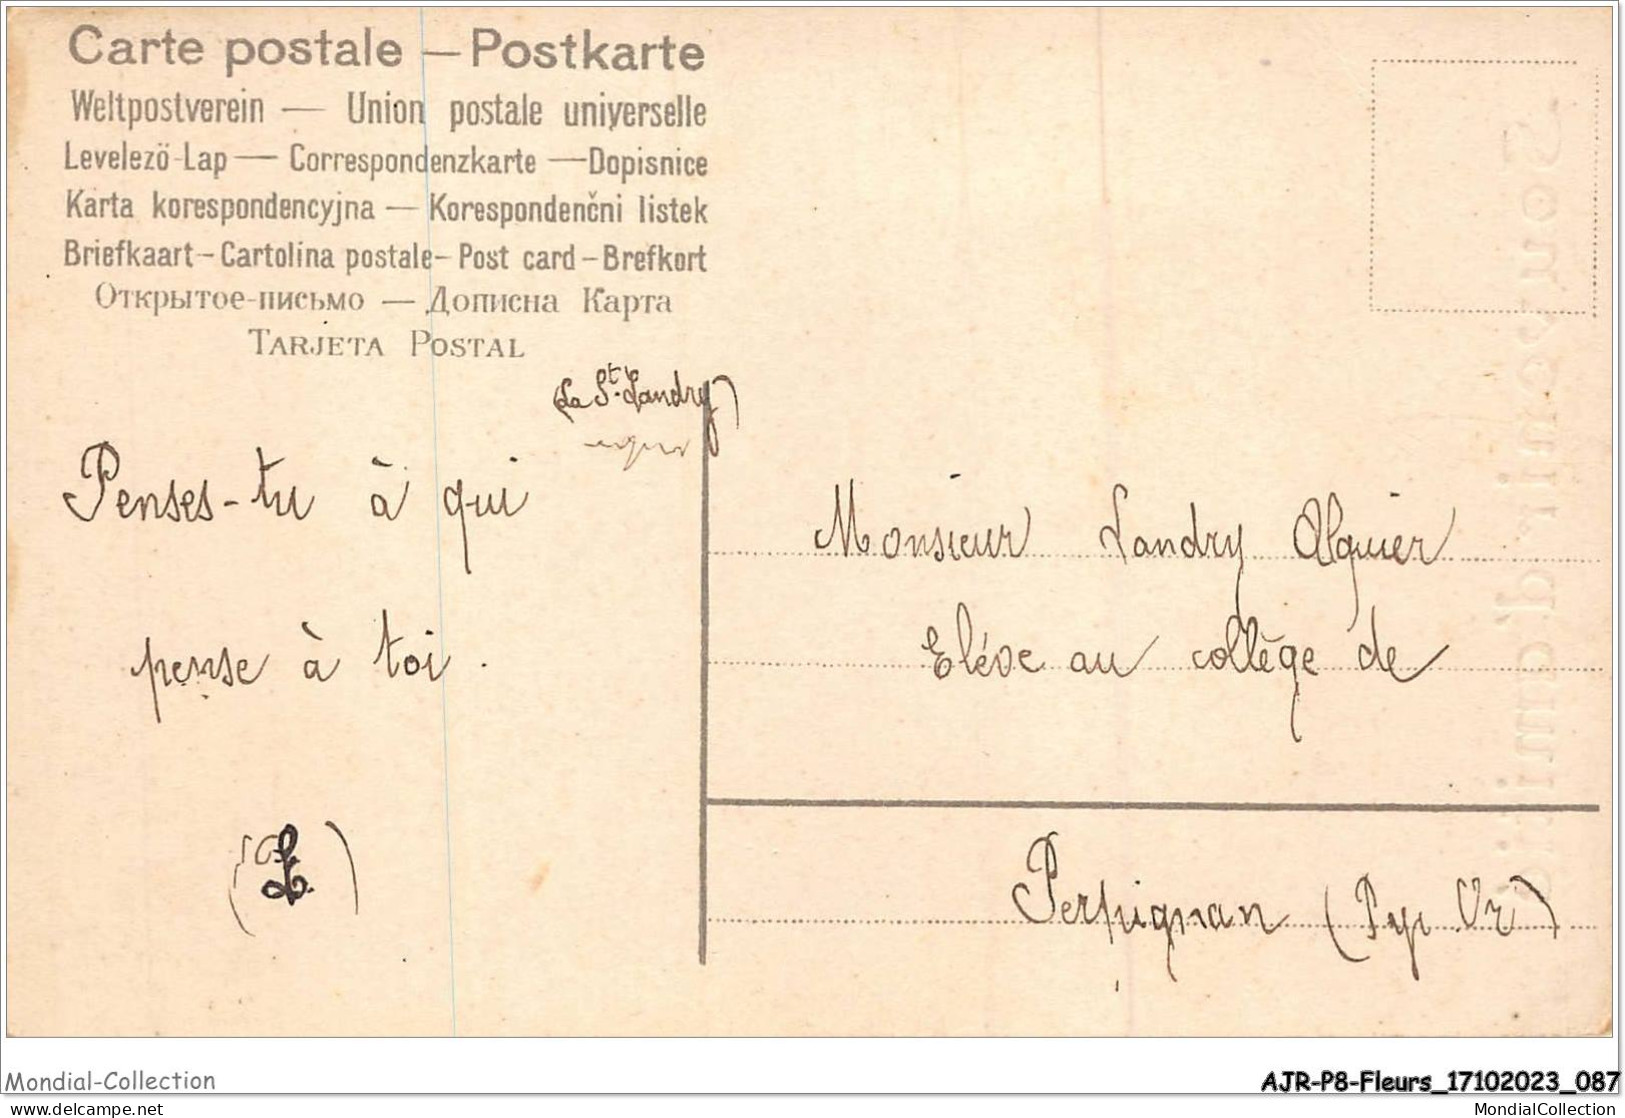 Carte postale — Postkarte
Weltpostverein — Union postale universelle
Levelezö-Lap — Correspondenzkarte — Dopisnice
Karta korespondencyjna — Korespondenčni listek
Briefkaart - Cartolina postale - Post card - Brefkort
Открытое-письмо — Дописна Карта
TARJETA POSTAL
(La St. Landry)
Penses-tu à qui
pense à toi.
(L.)
Monsieur Landry Alquier
Eléve au collège de
Perpignan (Pyr Or)
Souvenir d'amitié
Mondial-Collection
delcampe.net
AJR-P8-Fleurs_17102023_087
MondialCollection